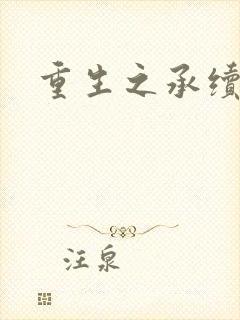 重生之承续
汪泉